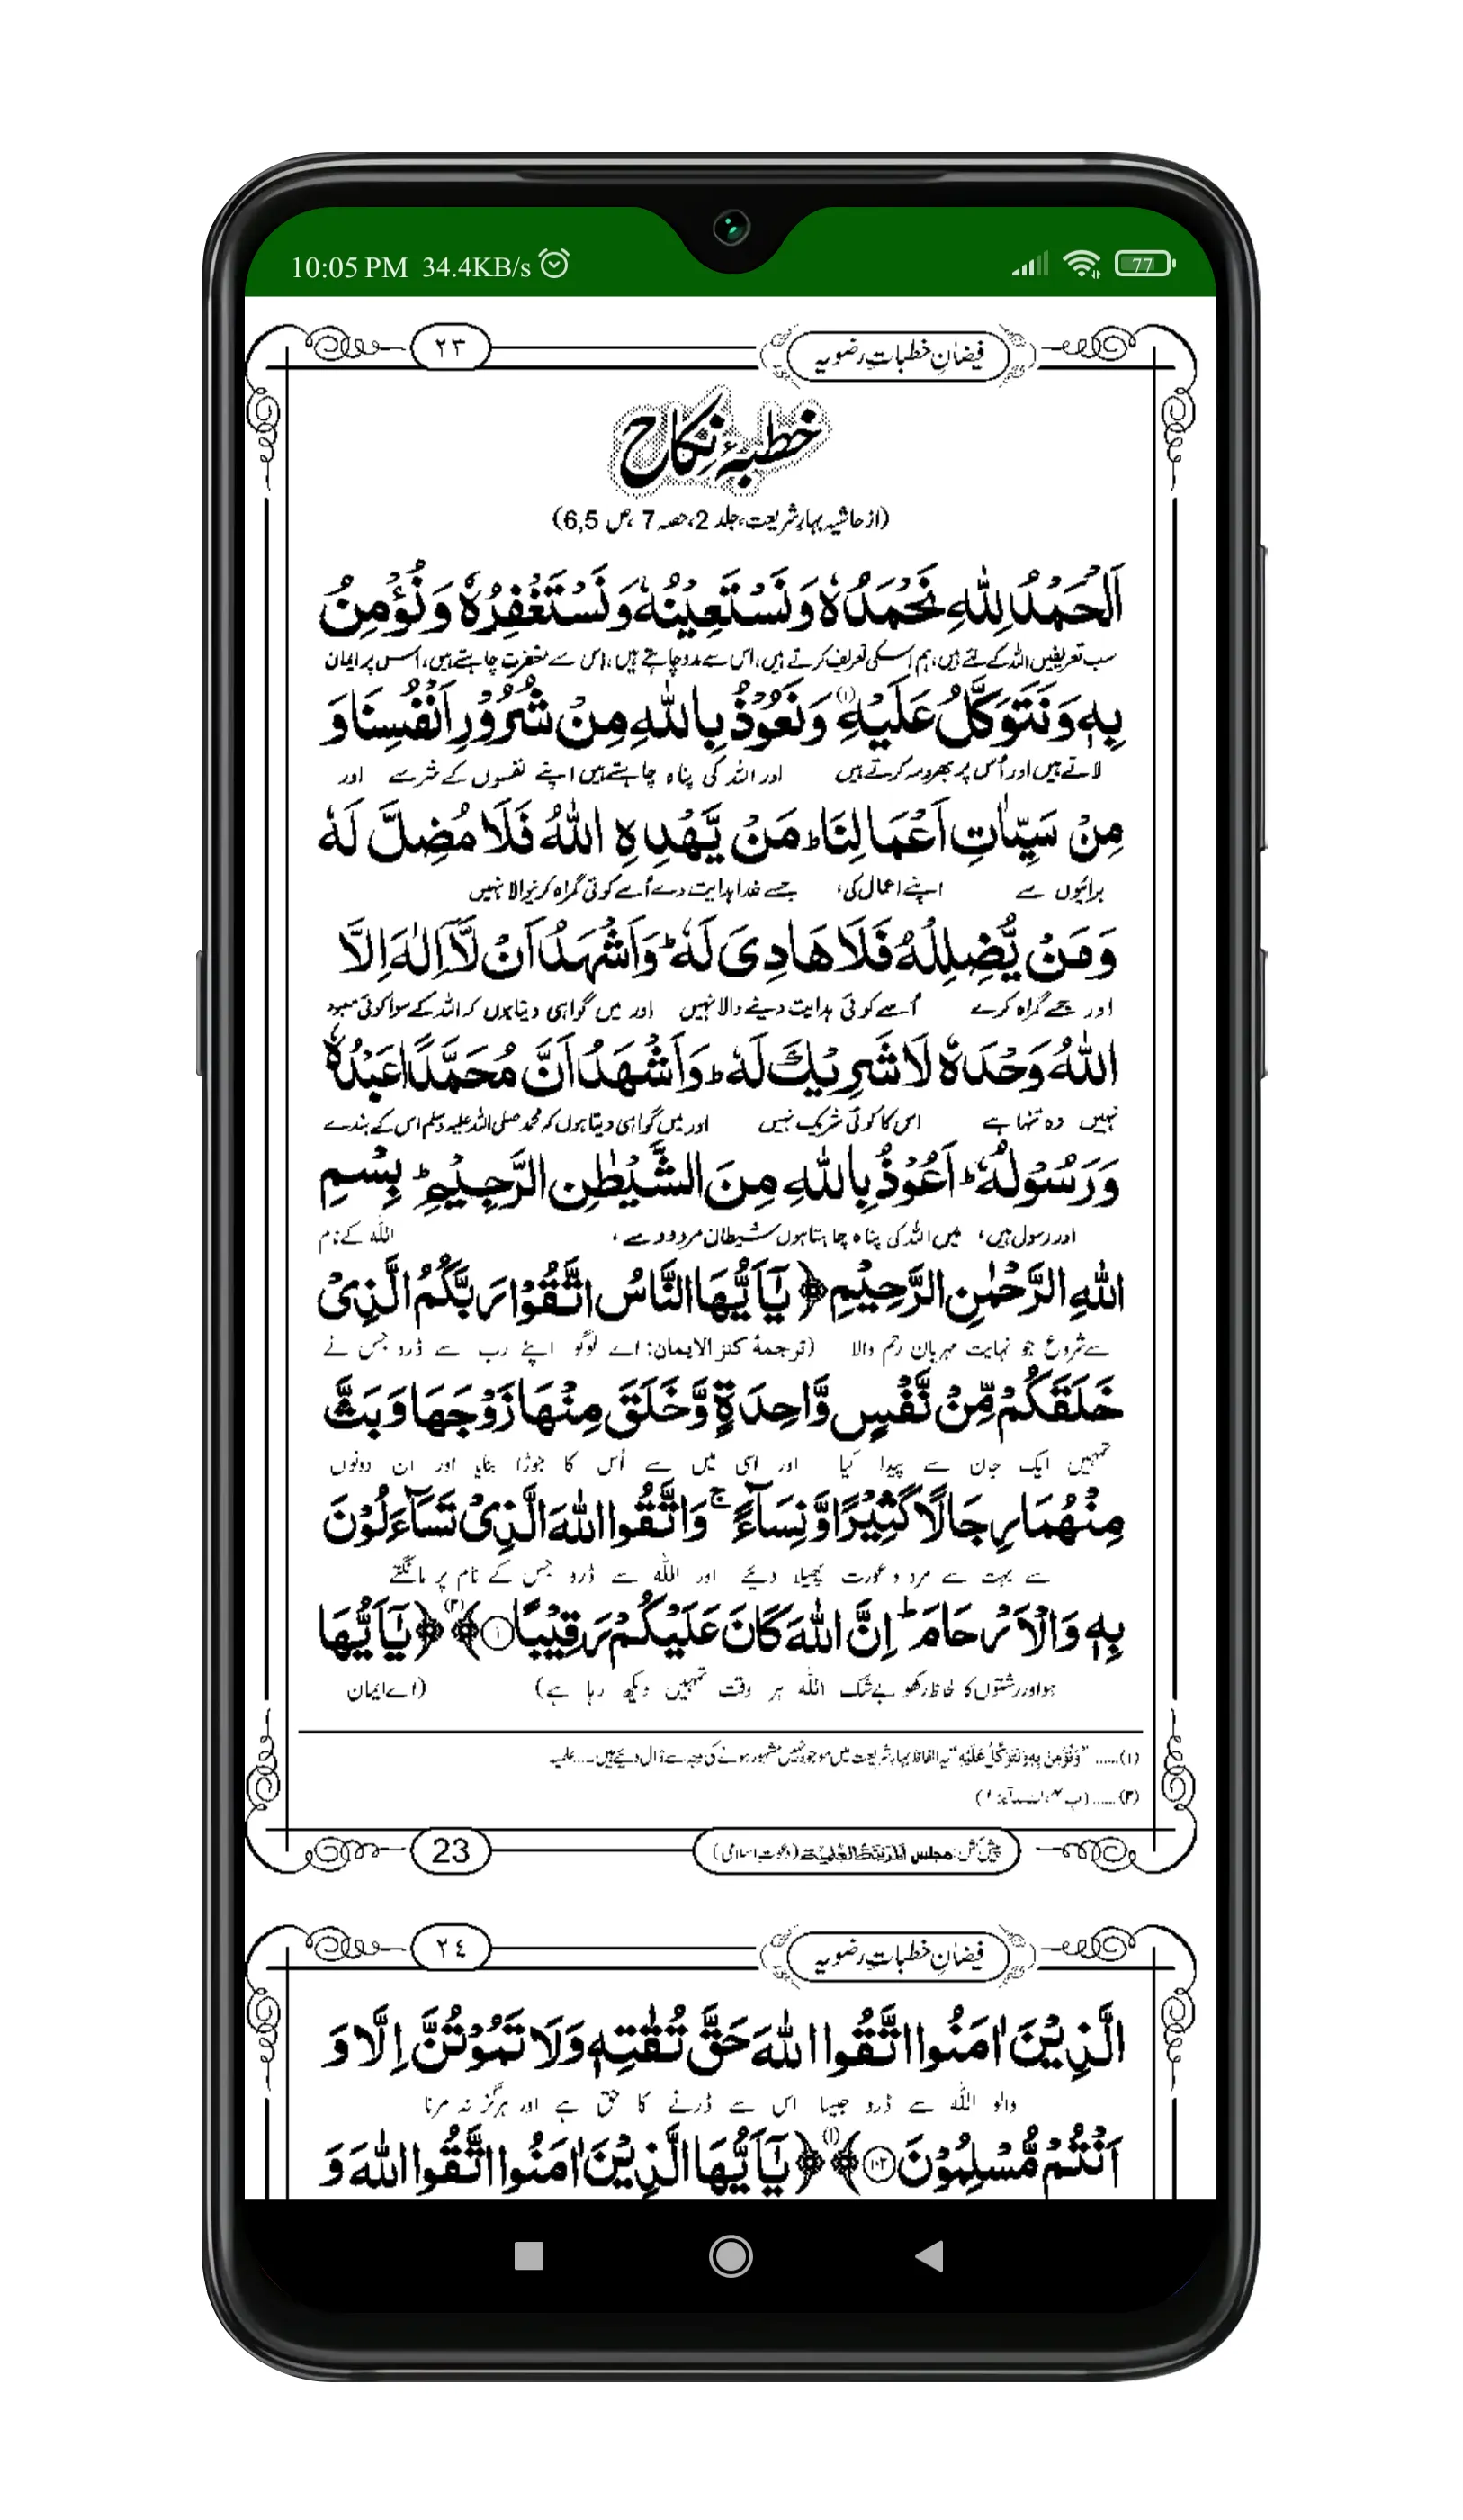 10:05 PM 34.4KB/s
77
فیضانِ خطباتِ رضویہ
٢٣
خطبۂ نکاح
(از حاشیہ بہارِ شریعت، جلد 2، حصہ 7، ص 6,5)
اَلْحَمْدُ لِلّٰهِ نَحْمَدُهٗ وَنَسْتَعِيْنُهٗ وَنَسْتَغْفِرُهٗ وَنُؤْمِنُ
سب تعریفیں اللہ کے لئے ہیں، ہم اسکی تعریف کرتے ہیں، اس سے مدد چاہتے ہیں، اس سے مغفرت چاہتے ہیں، اس پر ایمان
بِهٖ وَنَتَوَكَّلُ عَلَيْهِ (١) وَنَعُوْذُ بِاللّٰهِ مِنْ شُرُوْرِ اَنْفُسِنَا وَ
لاتے ہیں اور اُس پر بھروسہ کرتے ہیں اور اللہ کی پناہ چاہتے ہیں اپنے نفسوں کے شر سے اور
مِنْ سَيِّاٰتِ اَعْمَالِنَا ؕ مَنْ يَّهْدِهِ اللّٰهُ فَلَا مُضِلَّ لَهٗ
برائیوں سے اپنے اعمال کی، جسے خدا ہدایت دے اُسے کوئی گمراہ کرنے والا نہیں
وَمَنْ يُّضْلِلْهُ فَلَا هَادِىَ لَهٗ ؕ وَاَشْهَدُ اَنْ لَّآ اِلٰهَ اِلَّا
اور جسے گمراہ کرے اُسے کوئی ہدایت دینے والا نہیں اور میں گواہی دیتا ہوں کہ اللہ کے سوا کوئی معبود
اللّٰهُ وَحْدَهٗ لَا شَرِيْكَ لَهٗ ؕ وَاَشْهَدُ اَنَّ مُحَمَّدًا عَبْدُهٗ
نہیں وہ تنہا ہے اس کا کوئی شریک نہیں اور میں گواہی دیتا ہوں کہ محمد صلی اللہ علیہ وسلم اس کے بندے
وَرَسُوْلُهٗ ؕ اَعُوْذُ بِاللّٰهِ مِنَ الشَّيْطٰنِ الرَّجِيْمِ ؕ بِسْمِ
اور رسول ہیں، میں اللہ کی پناہ چاہتا ہوں شیطان مردود سے، اللہ کے نام
اللّٰهِ الرَّحْمٰنِ الرَّحِيْمِ ﴿ يٰٓاَيُّهَا النَّاسُ اتَّقُوْا رَبَّكُمُ الَّذِىْ
سے شروع جو نہایت مہربان رحم والا (ترجمۂ کنز الایمان: اے لوگو اپنے رب سے ڈرو جس نے
خَلَقَكُمْ مِّنْ نَّفْسٍ وَّاحِدَةٍ وَّخَلَقَ مِنْهَا زَوْجَهَا وَبَثَّ
تمہیں ایک جان سے پیدا کیا اور اسی میں سے اُس کا جوڑا بنایا اور ان دونوں
مِنْهُمَا رِجَالًا كَثِيْرًا وَّنِسَآءً ۚ وَاتَّقُوا اللّٰهَ الَّذِىْ تَسَآءَلُوْنَ
سے بہت سے مرد و عورت پھیلا دیئے اور اللہ سے ڈرو جس کے نام پر مانگتے
بِهٖ وَالْاَرْحَامَ ؕ اِنَّ اللّٰهَ كَانَ عَلَيْكُمْ رَقِيْبًا ١ ﴾ (٢) ﴿ يٰٓاَيُّهَا
ہو اور رشتوں کا لحاظ رکھو بے شک اللہ ہر وقت تمہیں دیکھ رہا ہے) (اے ایمان
(١)...... "وَنُؤْمِنُ بِهٖ وَنَتَوَكَّلُ عَلَيْهِ" یہ الفاظ بہارِ شریعت میں موجود نہیں مشہور ہونے کی وجہ سے ڈال دیئے ہیں۔...علمیہ
(٢)...... (پ ٤، النسآء: ١)
پیش کش: مجلس المدینۃ العلمیۃ (دعوتِ اسلامی)
23
فیضانِ خطباتِ رضویہ
٢٤
الَّذِيْنَ اٰمَنُوا اتَّقُوا اللّٰهَ حَقَّ تُقٰتِهٖ وَلَا تَمُوْتُنَّ اِلَّا وَ
والو اللہ سے ڈرو جیسا اس سے ڈرنے کا حق ہے اور ہرگز نہ مرنا
اَنْتُمْ مُّسْلِمُوْنَ ١٠٢ ﴾ (١) ﴿ يٰٓاَيُّهَا الَّذِيْنَ اٰمَنُوا اتَّقُوا اللّٰهَ وَ